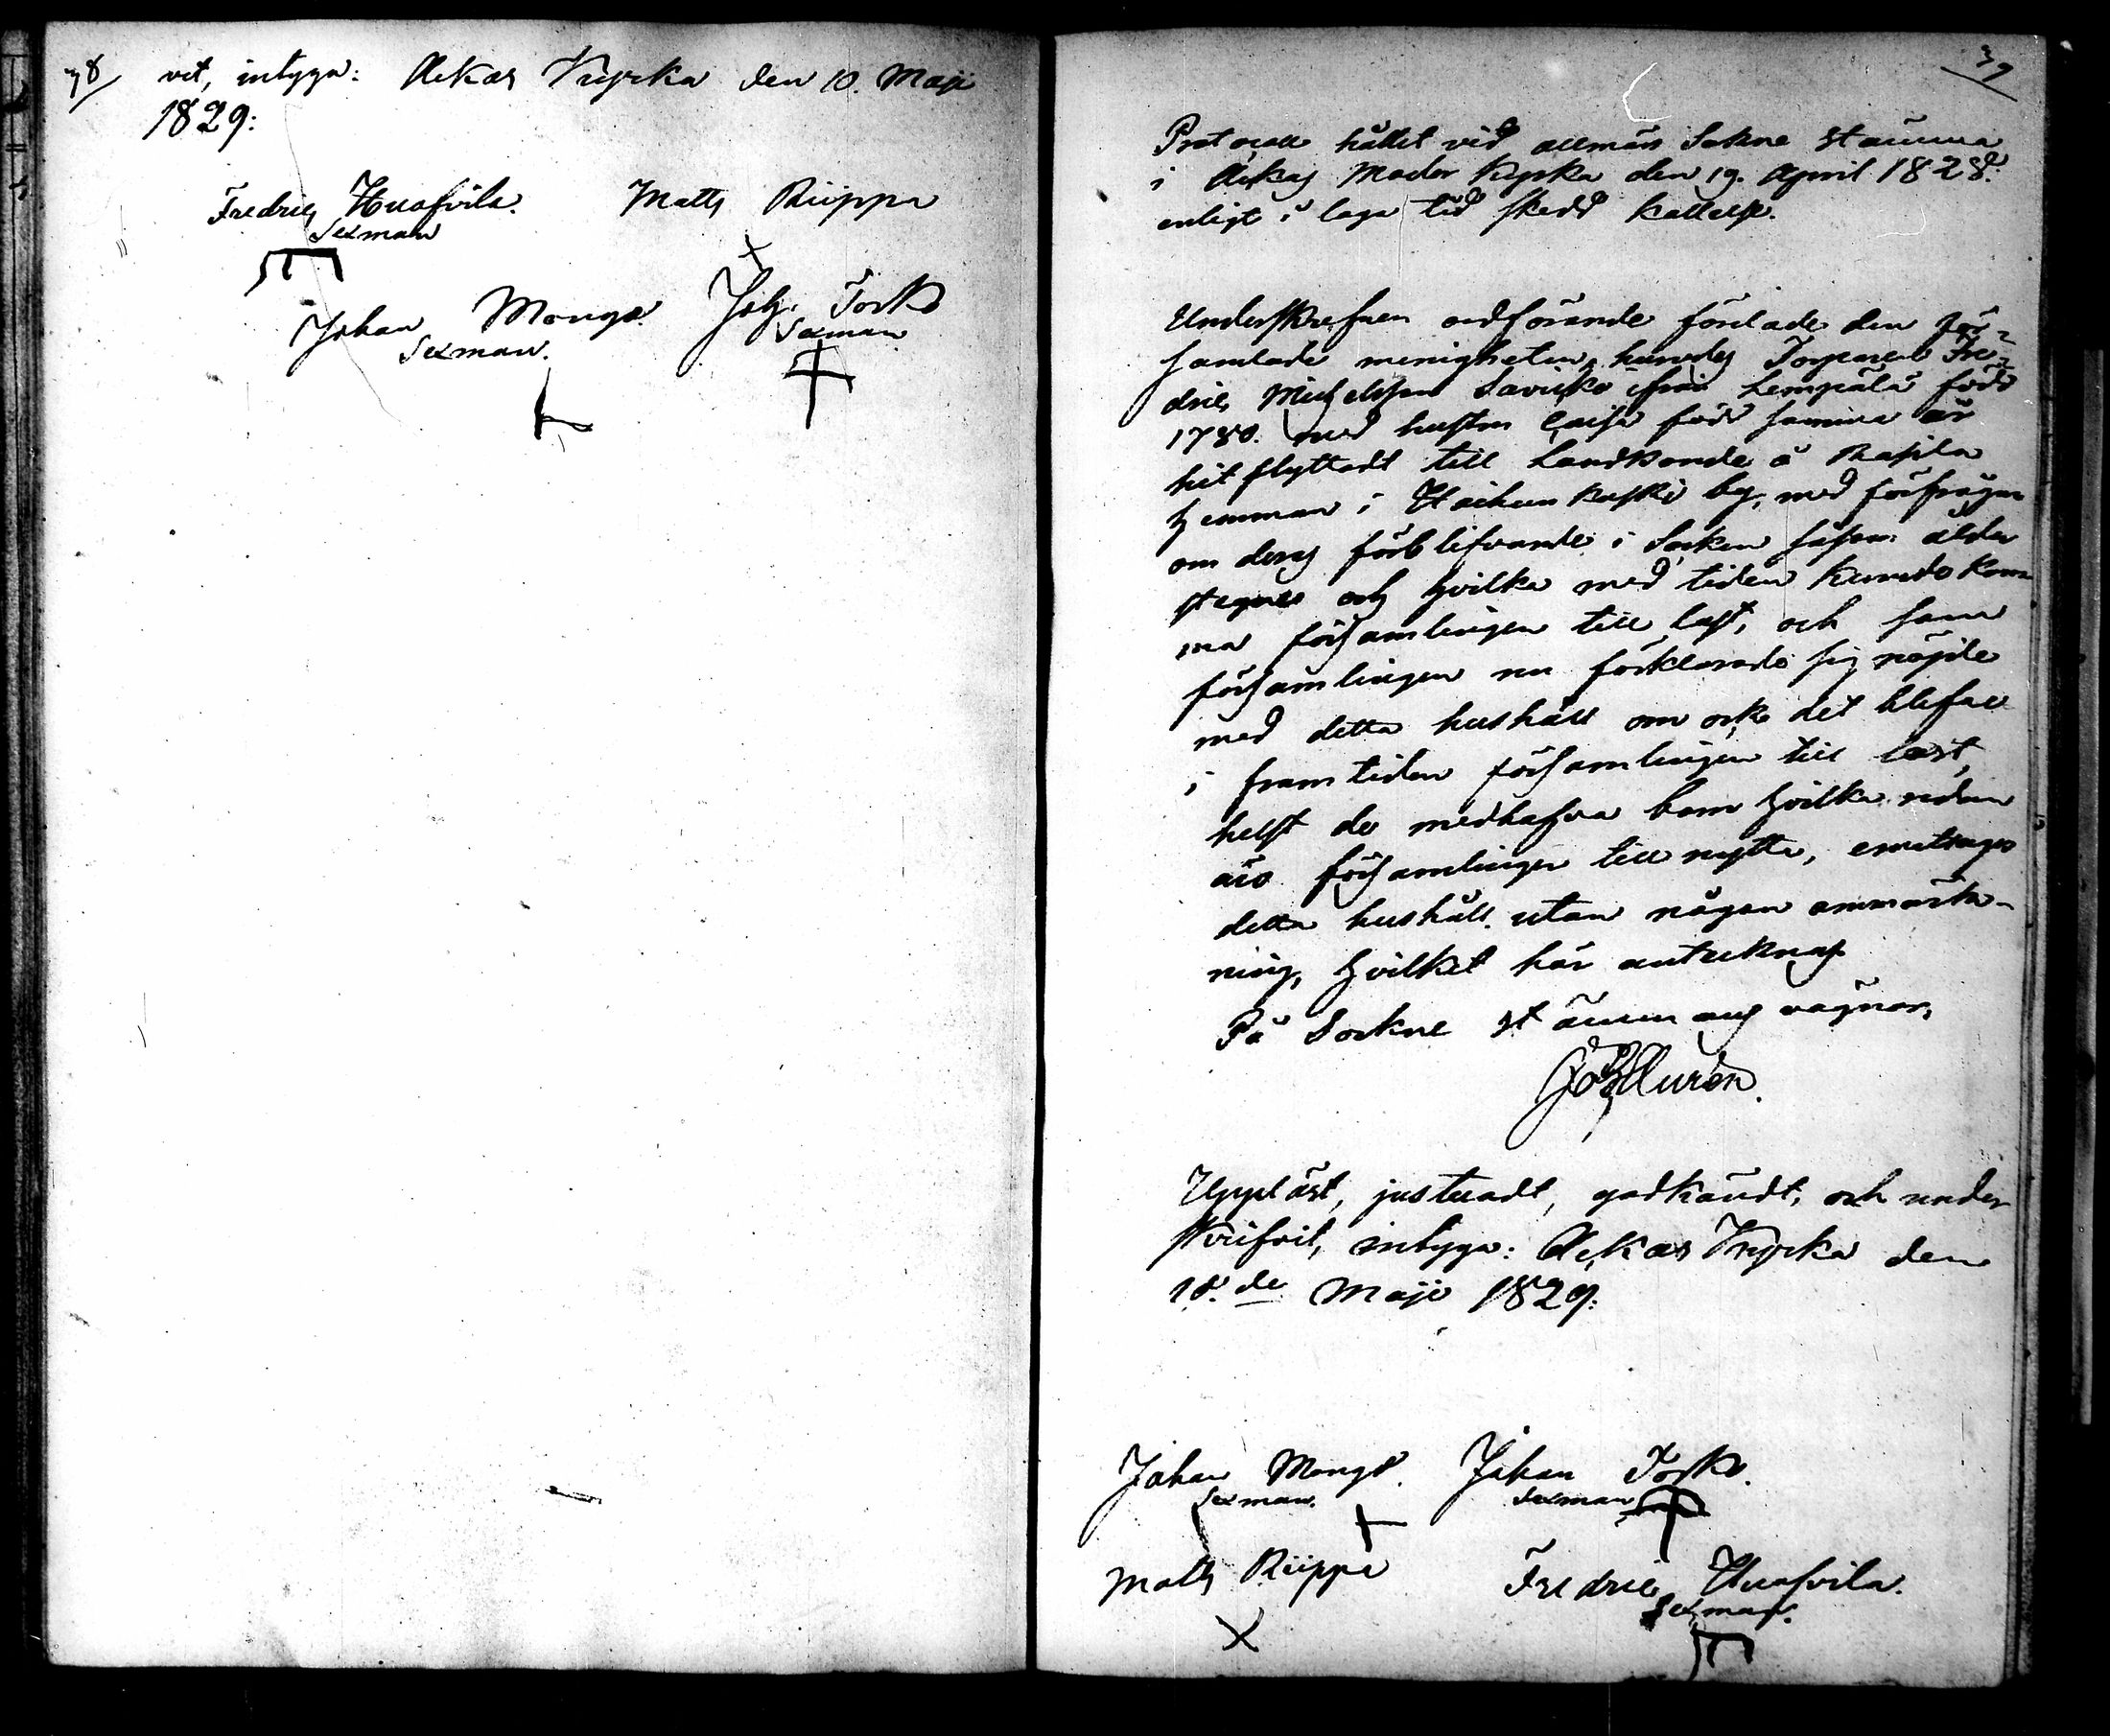 38
vet, intyga: Ackas Kyrka den 10. Maji
1829:
Fredric Huafvila. Matts Riippa
Sexman
Johan Mongo. Joh. Torko
Sexman. Sexman
39
Protocoll hållet vid allmän Sokne stämma
i Ackas Moder Kyrka den 19. April 1828:
enligt i laga tid skedd kallelse.
Underskrefven ordförande förelade den för-
samlade menigheten, huruledes Torparen Fre-
dric Michelsson Savikko ifrån Lempälä född
1780. med hustru Caisa född samma år
hitflyttadt till Landbonde å Rasila
hemman i Haihunkoski by, med förfrågan
om deras förblifvande i Socken såsom ålder
stegne och hvilka med tiden kunde kom
ma församlingen till last, och som
församlingen nu förklarade sig nöjde
med detta hushåll om ock det blefve
i framtiden församlingen till last,
helst de medhafva barn hvilka redan
äro församlingen till nytta, emottages
detta hushåll utan någon anmärk-
ning, hvilket här antecknas.
På Sockne stämmans vägnar,
Upplåst, justeradt, godkändt, och under
skrifvit, intyga: Ackas Kyrka den
10.de Maji 1829:
Johan Mongo. Johan Torko.
Sexman. Sexman
Matts Riippa Fredric Huafvila.
Sexman.